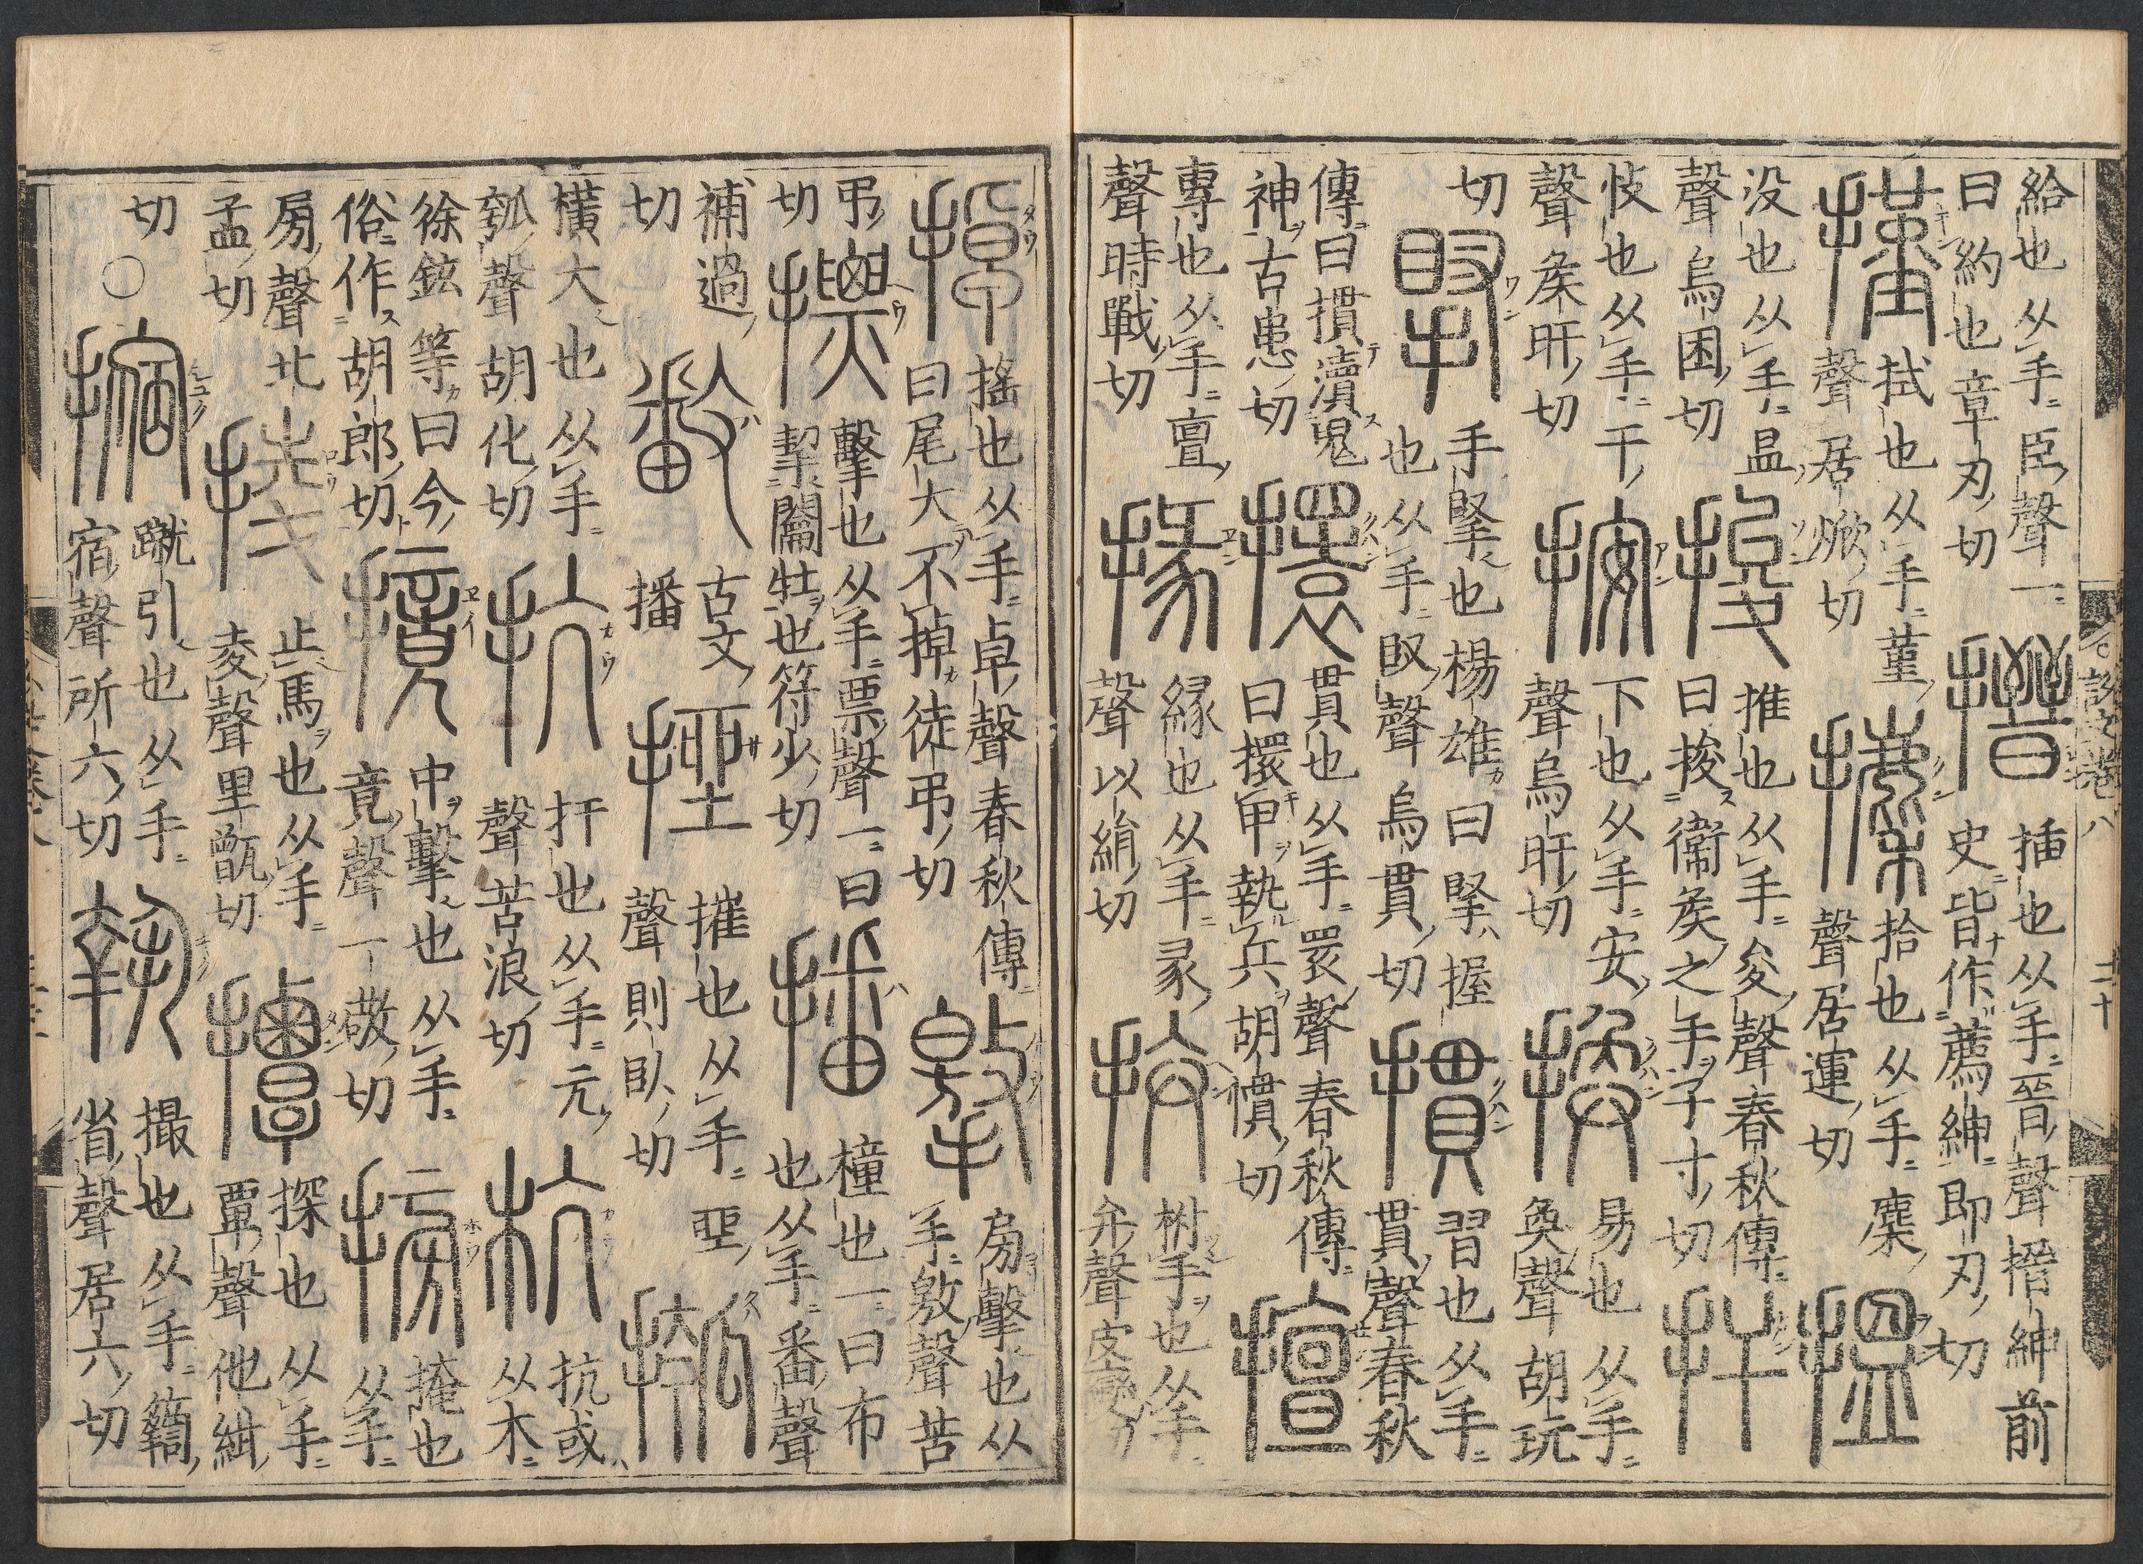 給也从手臣聲一
曰約也章刃切
搢
插也从手晉聲搢紳前
史皆作薦紳即刃切
㨷
拭也从手堇
聲居焮切
攈
拾也从手麇
聲居運切
揾
没也从手昷
聲烏困切
捘
推也从手夋聲春秋傳
曰捘衞矦之手子寸切
扞
忮也从手干
聲矦旰切
按
下也从手安
聲烏旰切
換
易也从手
奐聲胡玩
切
掔
手掔也楊雄曰掔握
也从手臤聲烏貫切
摜
習也从手
貫聲春秋
傳曰摜瀆鬼
神古患切
擐
貫也从手睘聲春秋傳
曰擐甲執兵胡慣切
擅
專也从手亶
聲時戰切
掾
緣也从手彖
聲以絹切
拚
拊手也从手
弁聲皮變切
說文卷八 二十
掉
搖也从手卓聲春秋傳
曰尾大不掉徒弔切
撽
㫄擊也从
手敫聲苦
弔
切
摽
擊也从手票聲一曰
挈闟牡也符少切
播
穜也一曰布
也从手番聲
補過
切
𢿥
古文
播
挫
摧也从手坐
聲則臥切
摦
橫大也从手
瓠聲胡化切
抗
扞也从手亢
聲苦浪切
杭
抗或
从木
徐鉉等曰今
俗作胡郎切
摬
中擊也从手
竟聲一敬切
搒
掩也
从手
㫄聲北
孟切
止馬也从手
夌聲里甑切
撢
探也从手
覃聲他紺
切
○
摍
蹴引也从手
宿聲所六切
撮也从手
省聲居六切